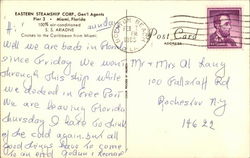 EASTERN STEAMSHIP CORP., Gen'l Agents
Pier 3 • Miami, Florida
100% air-conditioned
S. S. ARIADNE
Cruises to the Caribbean from Miami
Post Card
ADDRESS
Hi Sunday
Well we are back in Florida
since Friday. We went
through this ship while
we docked in Free Port
We are leaving Florida
Thursday I hate to think
of the cold again. but all
Good things have to come
to an end
Mr & Mrs Al Lang
100 Fallstaff Rd
Rochester N.Y
14622